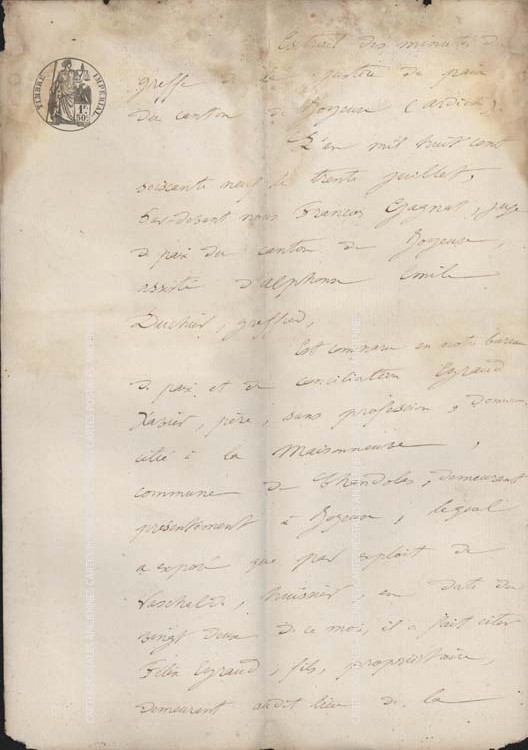 Extrait des minutes du
greffe de la justice de paix
du canton de Joyeuse (Ardèche).
L'an mil huit cent
soixante neuf le trente juillet,
Par devant nous François Gagnat, juge
de paix du canton de Joyeuse,
assisté d'alphonse Emile
Duchier, greffier,
Est comparu en notre bureau
de paix et de conciliation Eyraud
Xavier, père, sans profession, domi
cilié à la Maisonneuve,
commune de Chandolas, demeurant
présentement à Joyeuse, lequel
a exposé que par exploit de
huissier, en date du
vingt deux de ce mois, il a fait citer
Félix Eyraud, fils, propriétaire,
demeurant audit lieu de la
TIMBRE IMPÉRIAL
1F
50C